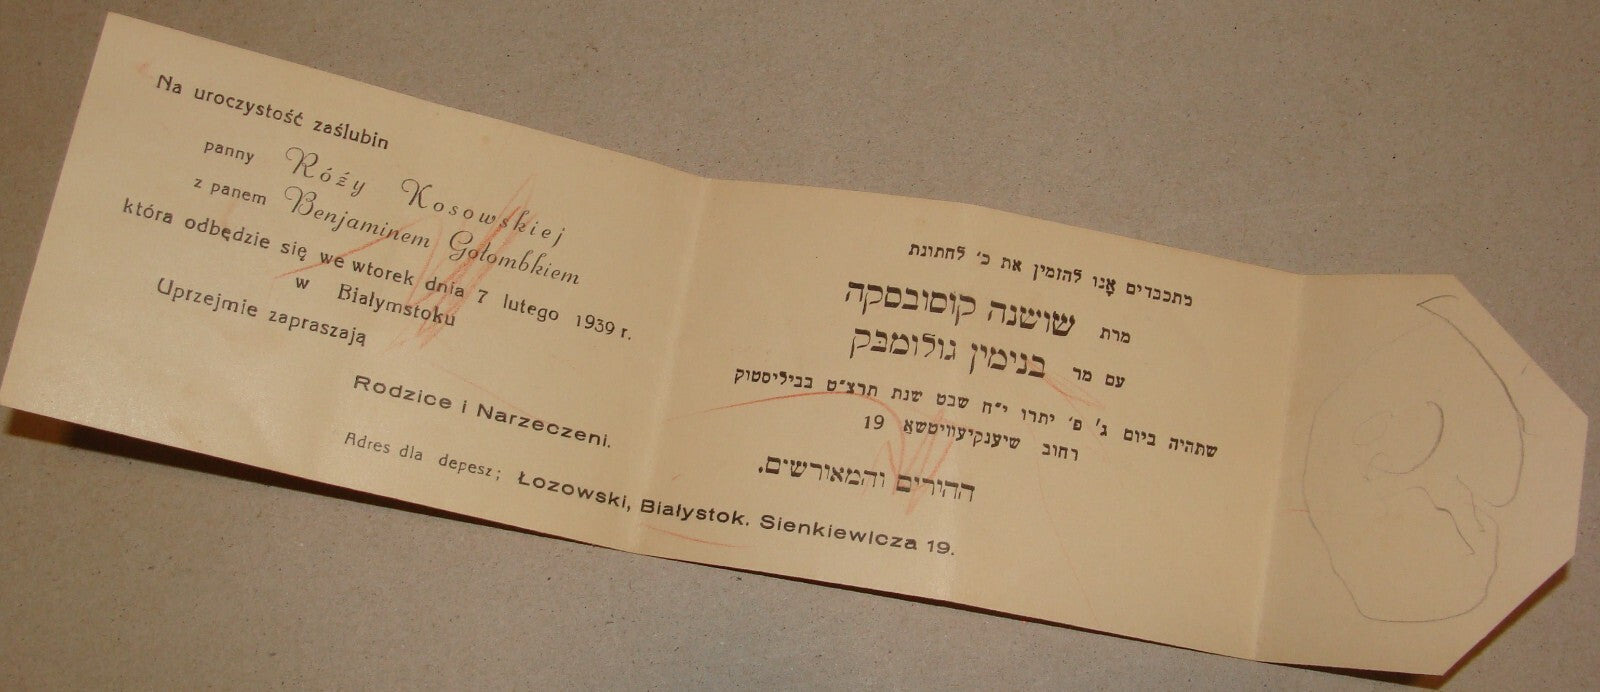 Na uroczystość zaślubin
panny Róży Kosowskiej
z panem Benjaminem Gołombkiem
która odbędzie się we wtorek dnia 7 lutego 1939 r.
w Białymstoku
Uprzejmie zapraszają
Rodzice i Narzeczeni.
Adres dla depesz; Łozowski, Białystok. Sienkiewicza 19.
מתכבדים אָנו להזמין את כ׳ לחתונת
מרת שושנה קוסובסקה
עם מר בנימין גולומבּק
שתהיה ביום ג׳ פ׳ יתרו י״ח שבט שנת תרצ״ט בביליסטוק
רחוב שיענקיעוויטשאַ 19
ההורים והמאורשים.